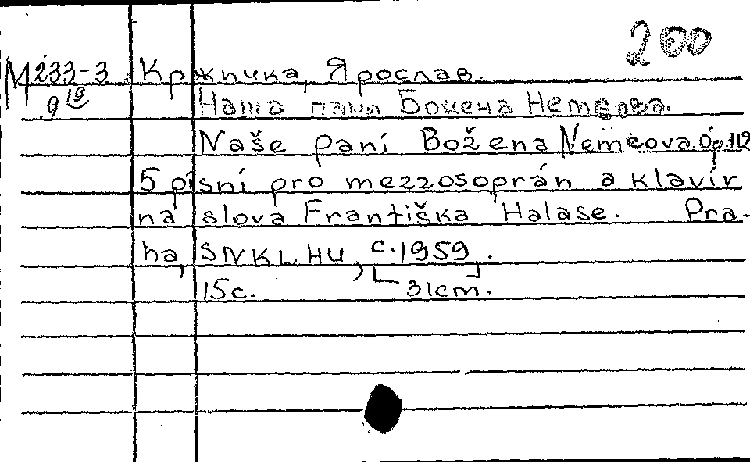 200
М 233-3 Кржичка, Ярослав.
9 19 Наша пани Божена Немцова.
Naše paní Božena Němcová. Op. 112
5 písní pro mezzosoprán a klavír
na slova Františka Halase. Pra-
ha, SNKLHU, c. 1959.
15 c. 31 cm.